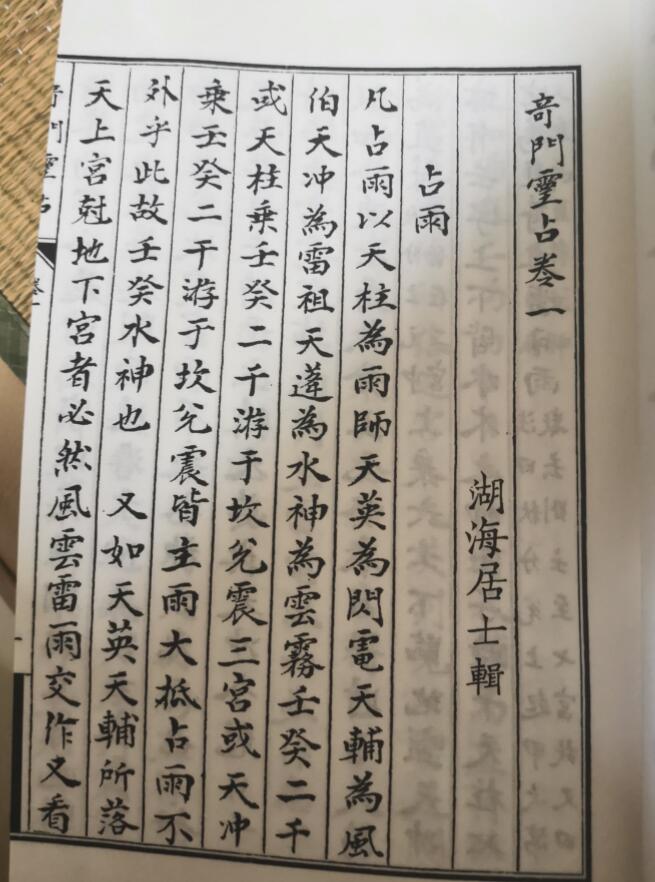 奇門靈占卷一
湖海居士輯
占雨
凡占雨以天柱為雨師天英為閃電天輔為風
伯天冲為雷祖天蓬為水神為雲霧壬癸二干
或天柱乘壬癸二干游于坎兊震三宮或天冲
乘壬癸二干游于坎兊震皆主雨大抵占雨不
外乎此故壬癸水神也 又如天英天輔所落
天上宮尅地下宮者必然風雲雷雨交作又看
奇門靈占